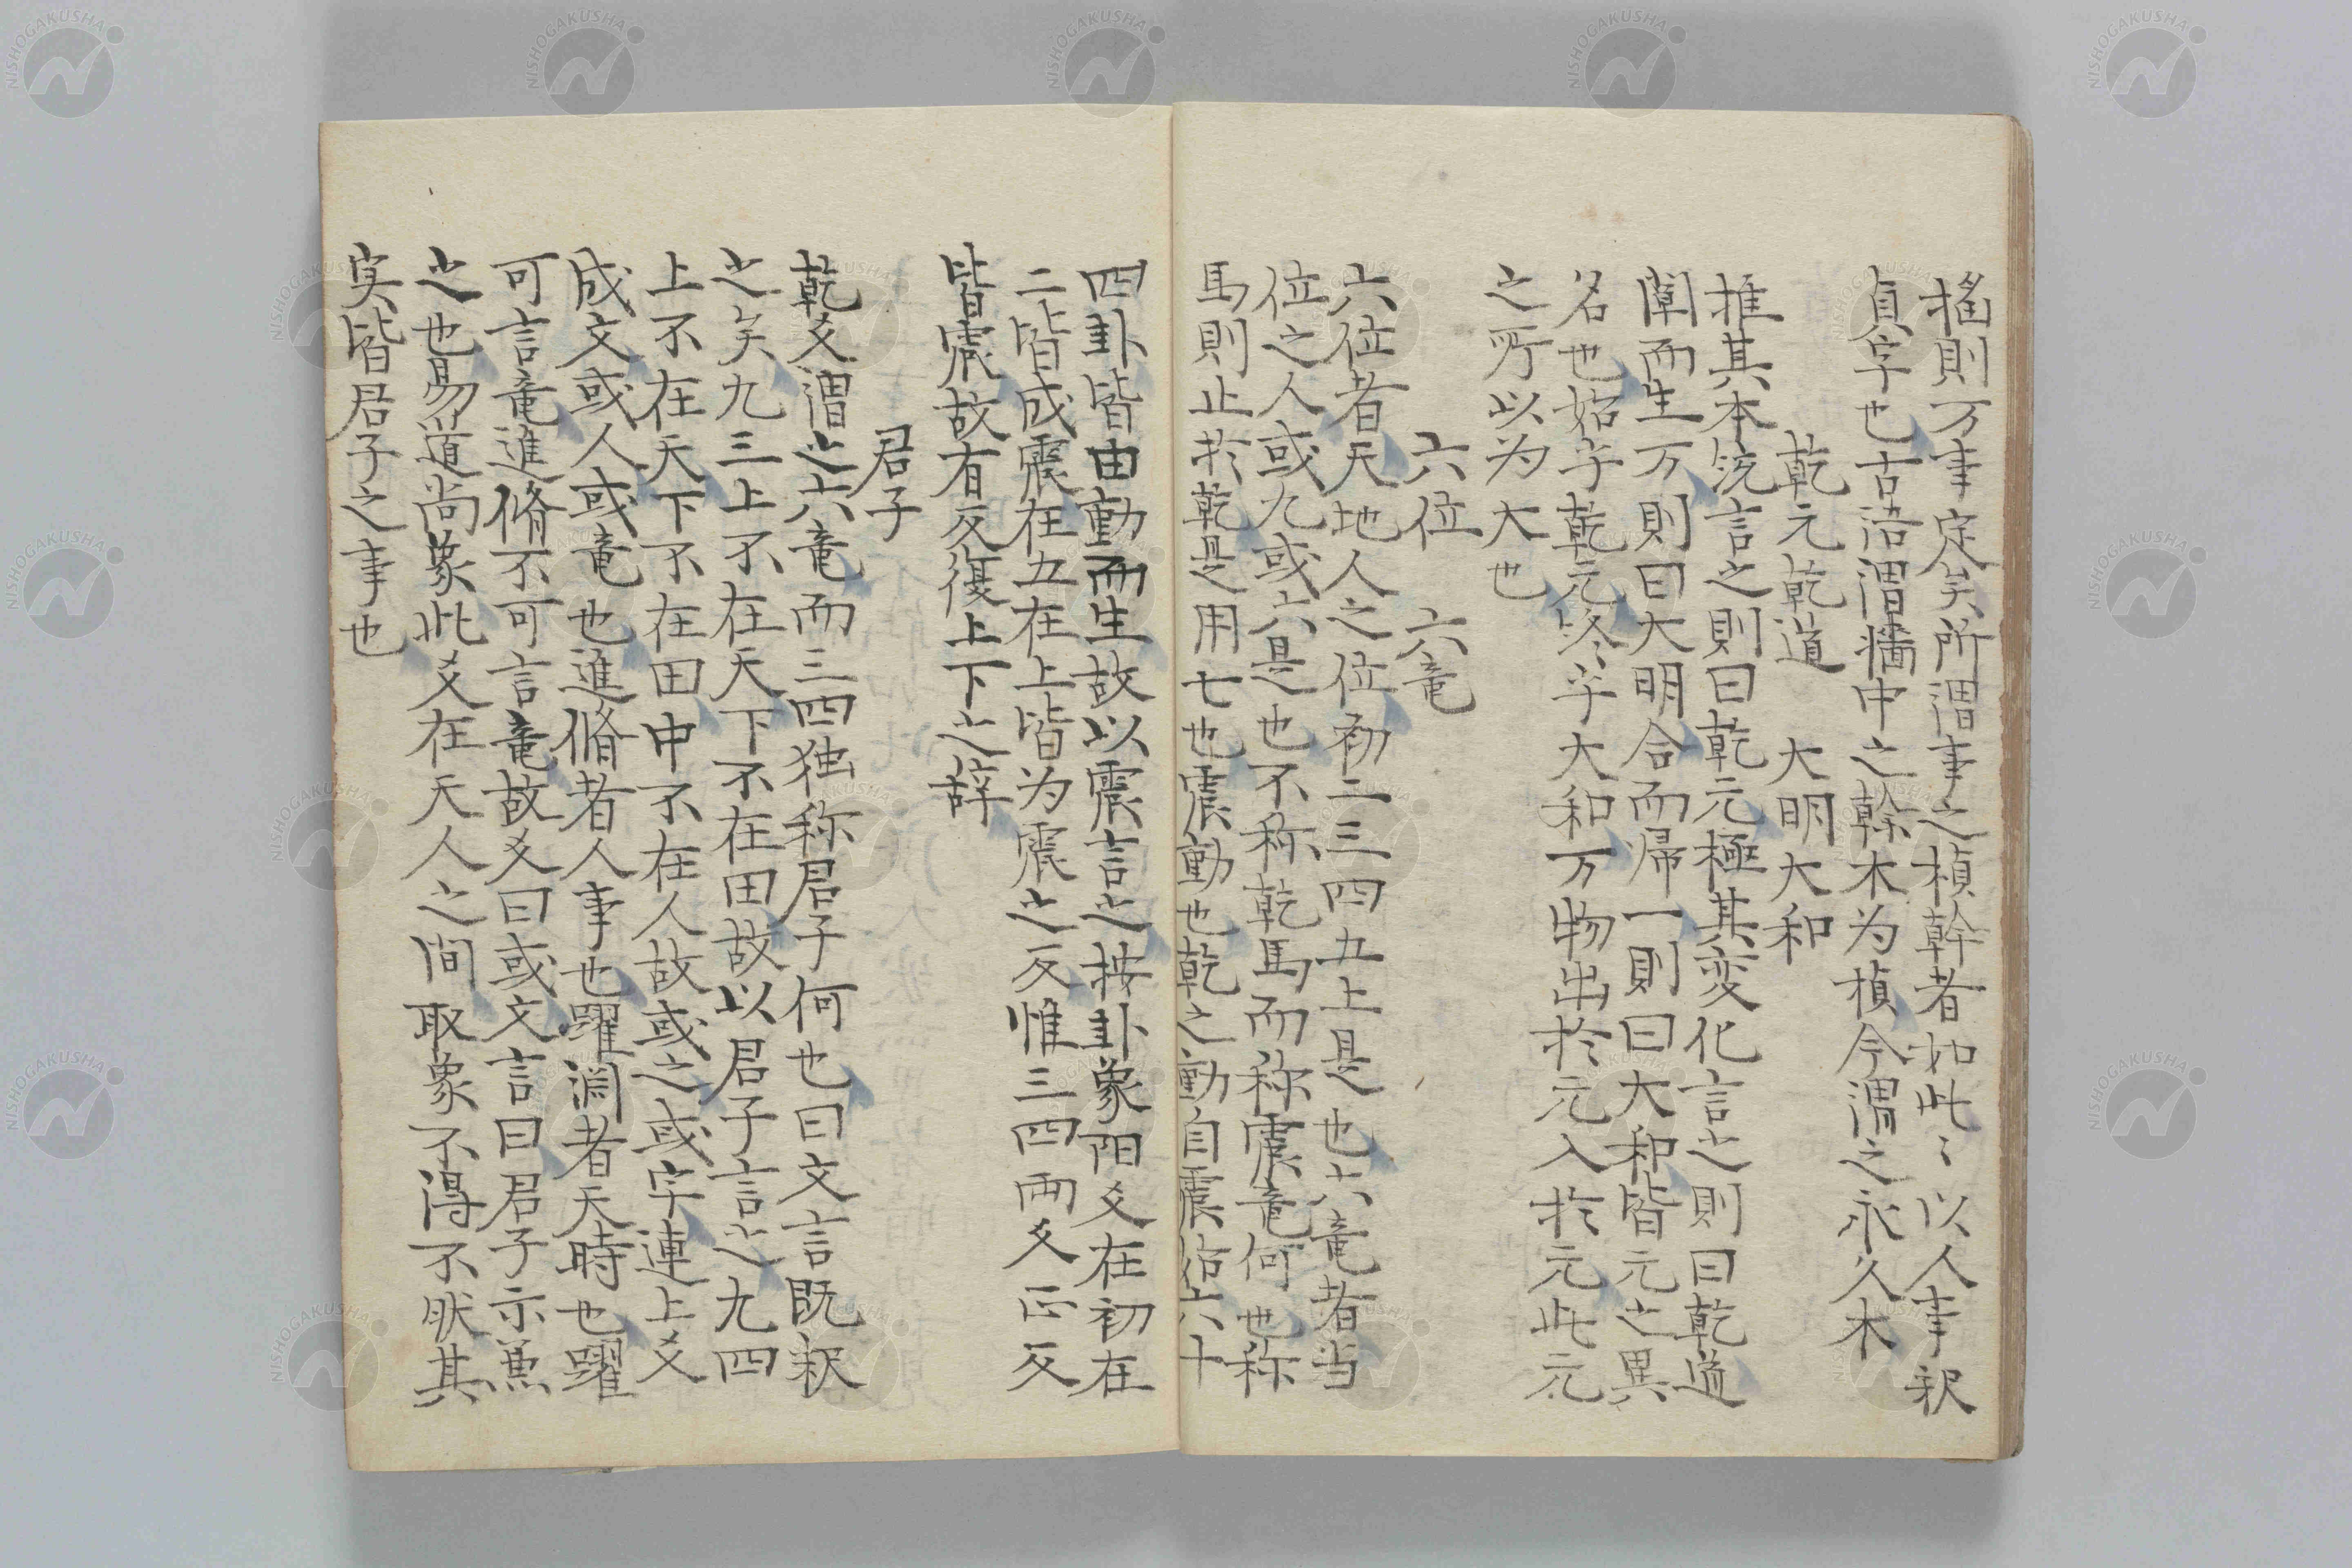 揺則万事定矣所謂事之楨幹者如此〻以人事釈
貞字也古語謂墻中之幹木为楨今謂之永久木
乾元乾道　大明大和
推其本統言之則曰乾元極其変化言之則曰乾道
闡而生万則曰大明合而帰一則曰大和皆元之異
名也始乎乾元終乎大和万物出於元入於元此元
之所以为大也
六位　六竜
六位者天地人之位初二三四五上是也六竜者当
位之人或九或六是也不称乾馬而称震竜何也称
馬則止於乾是之用七也震動也乾之動自震始六十
四卦皆由動而生故以震言之按卦象阳爻在初在
二皆成震在五在上皆为震之反惟三四両爻正反
皆震故有反復上下之辞
君子
乾爻謂之六竜而三四独称君子何也曰文言既釈
之矣九三上不在天下不在田故以君子言之九四
上不在天下不在田中不在人故或之或字連上爻
成文或人或竜也進脩者人事也躍淵者天時也躍
可言竜進脩不可言竜故爻曰或文言曰君子示兼
之也易道尚象此爻在天人之間取象不得不然其
実皆君子之事也